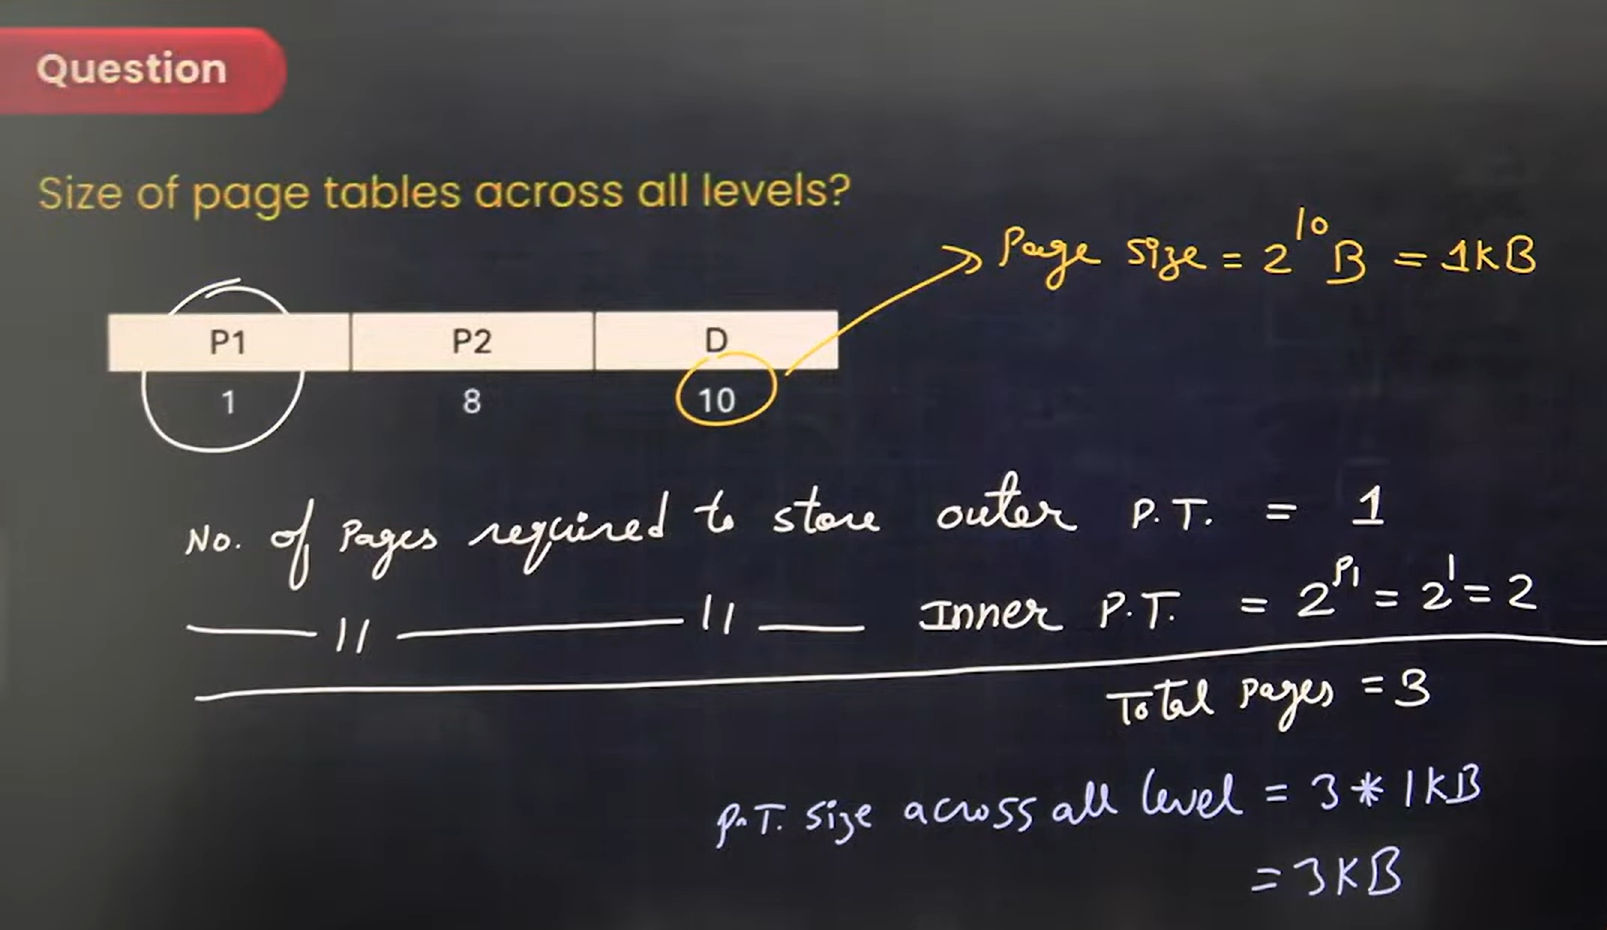 Question
Size of page tables across all levels?
Page size = 2^10 B = 1KB
P1 P2 D
1 8 10
No. of Pages required to store outer P.T. = 1
—— 11 —— 11 —— Inner P.T. = 2^P1 = 2^1 = 2
Total pages = 3
P.T. size across all level = 3 * 1KB
= 3KB